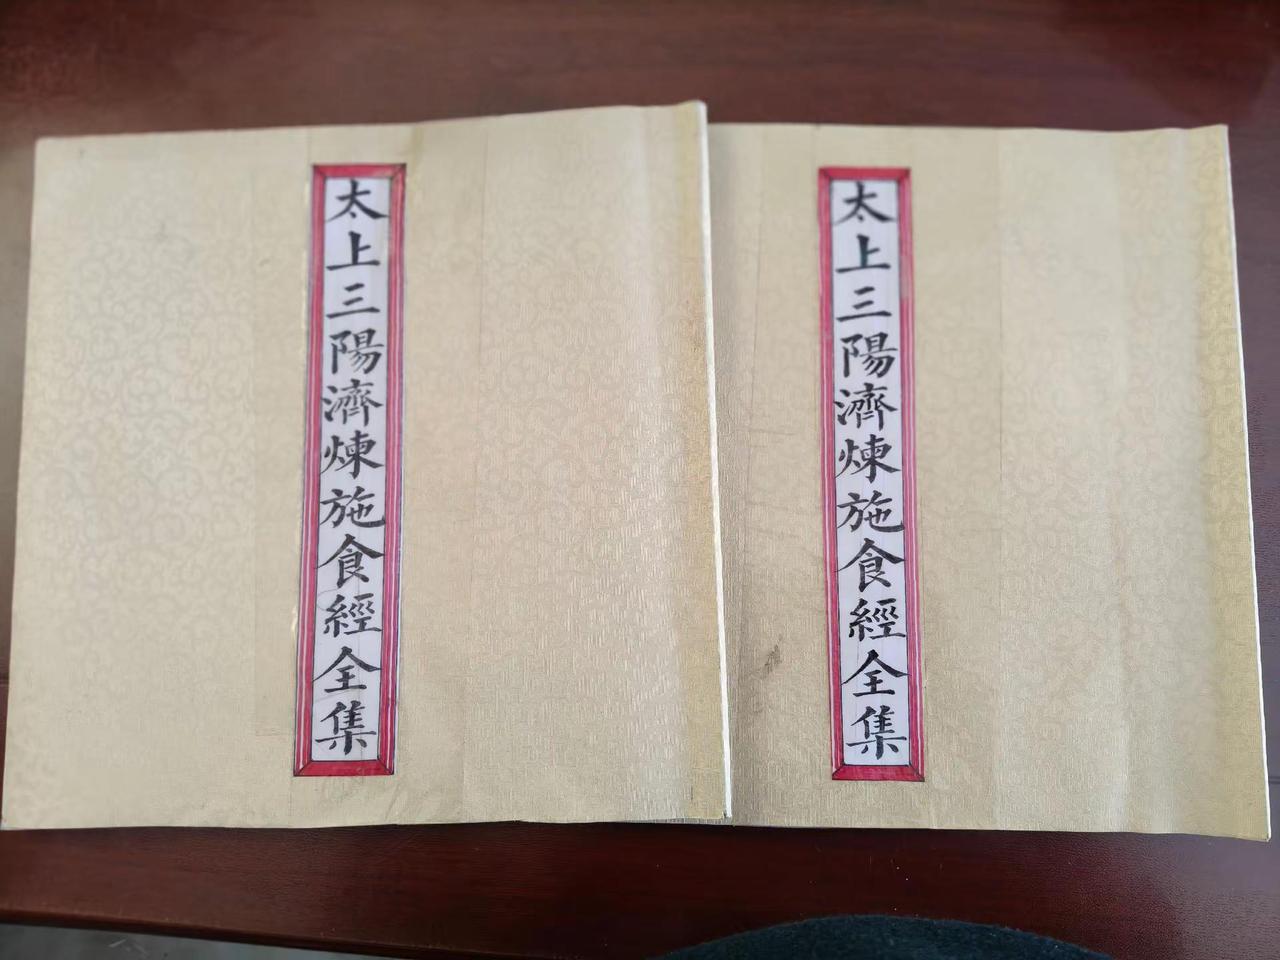 太上三陽濟煉施食經全集
太上三陽濟煉施食經全集